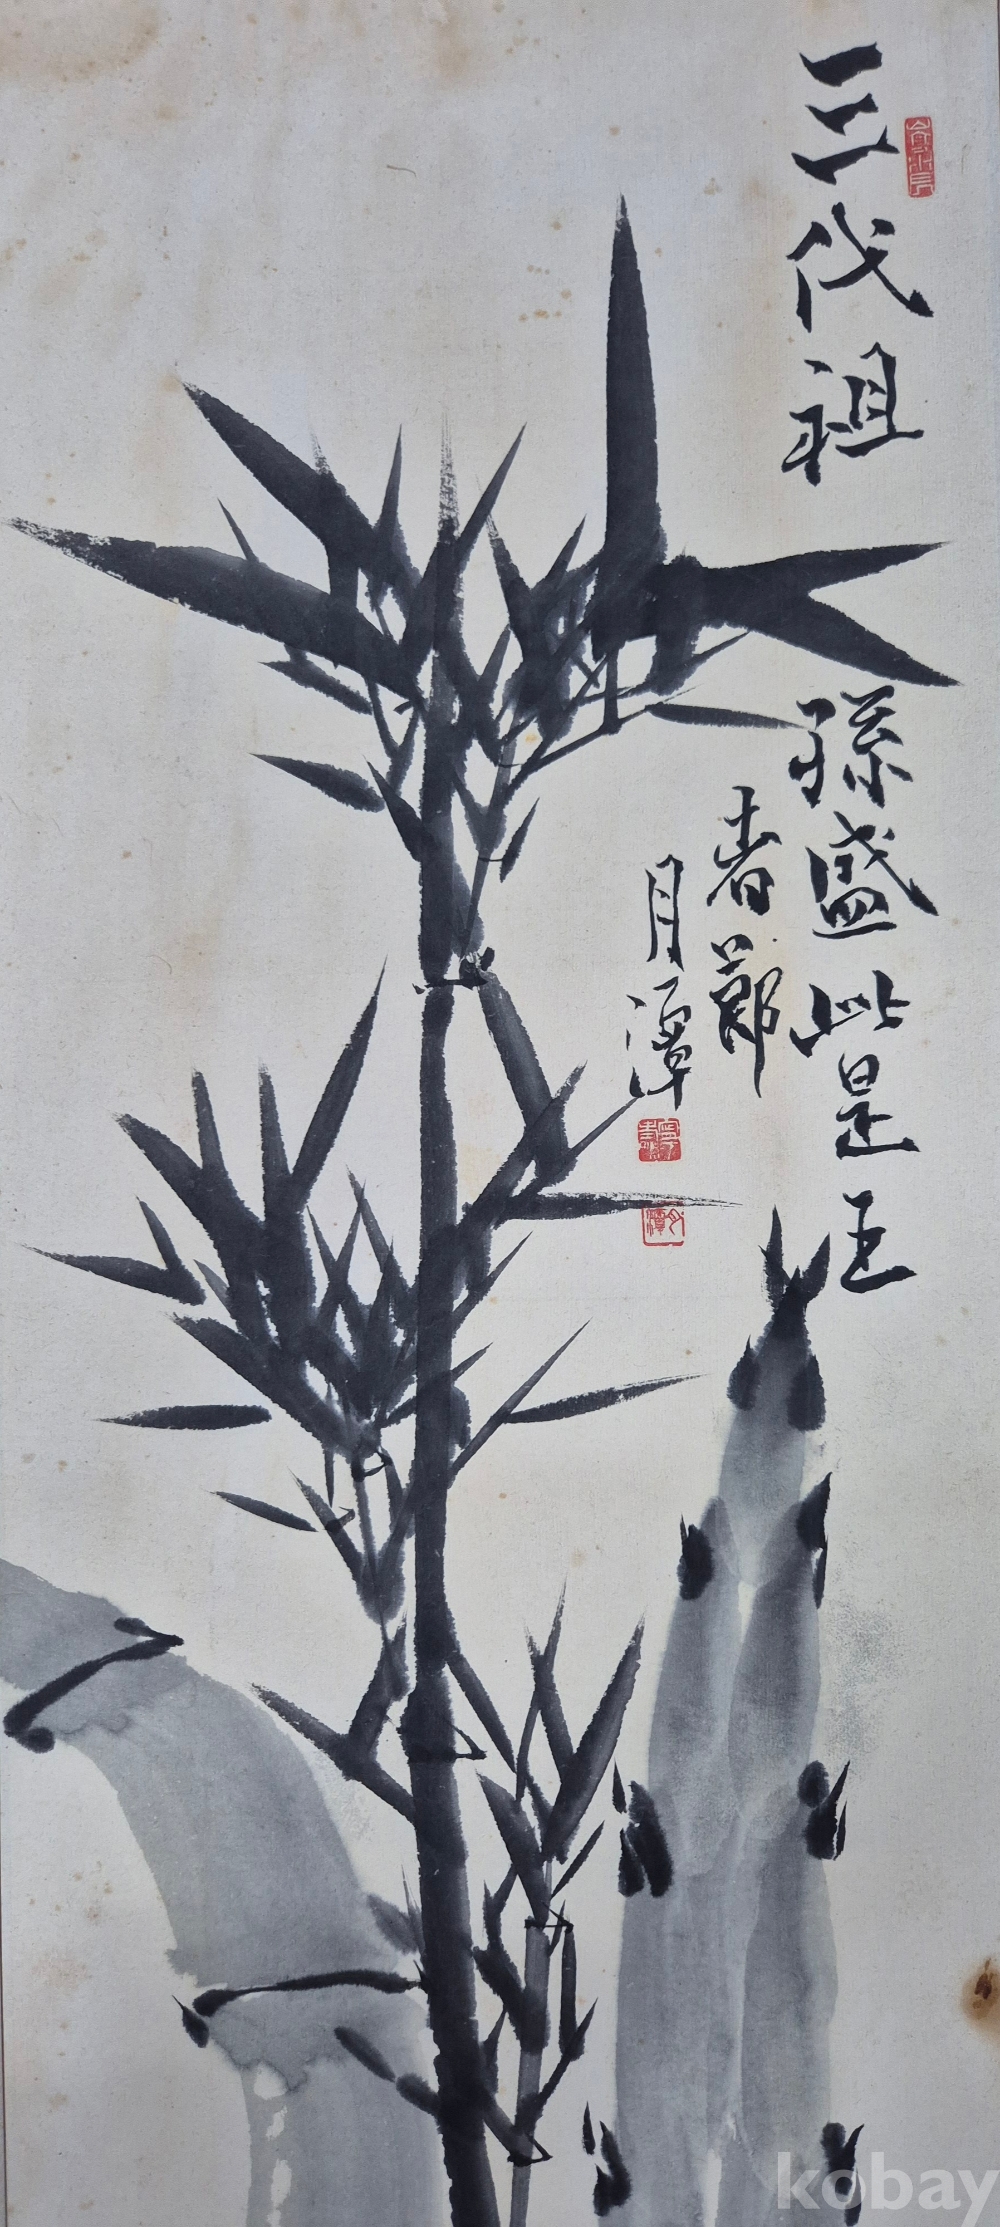 三代祖孫盛此是王
者鄕
月潭
kobay